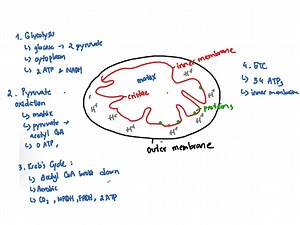 1. Glycolysis
↳ glucose → 2 pyruvate
↳ cytoplasm
↳ 2 ATP & NADH
2. Pyruvate oxidation
↳ matrix
↳ pyruvate → acetyl CoA
↳ 0 ATP,
3. Kreb's Cycle:
↳ Acetyl CoA broke down
↳ Aerobic
↳ CO₂, NADH, FADH, 2 ATP
inner membrane
matrix
cristae
proteins
H⁺
H⁺
H⁺
H⁺
H⁺
H⁺
H⁺
outer membrane
4. ETC
↳ 34 ATPs
↳ inner membrane